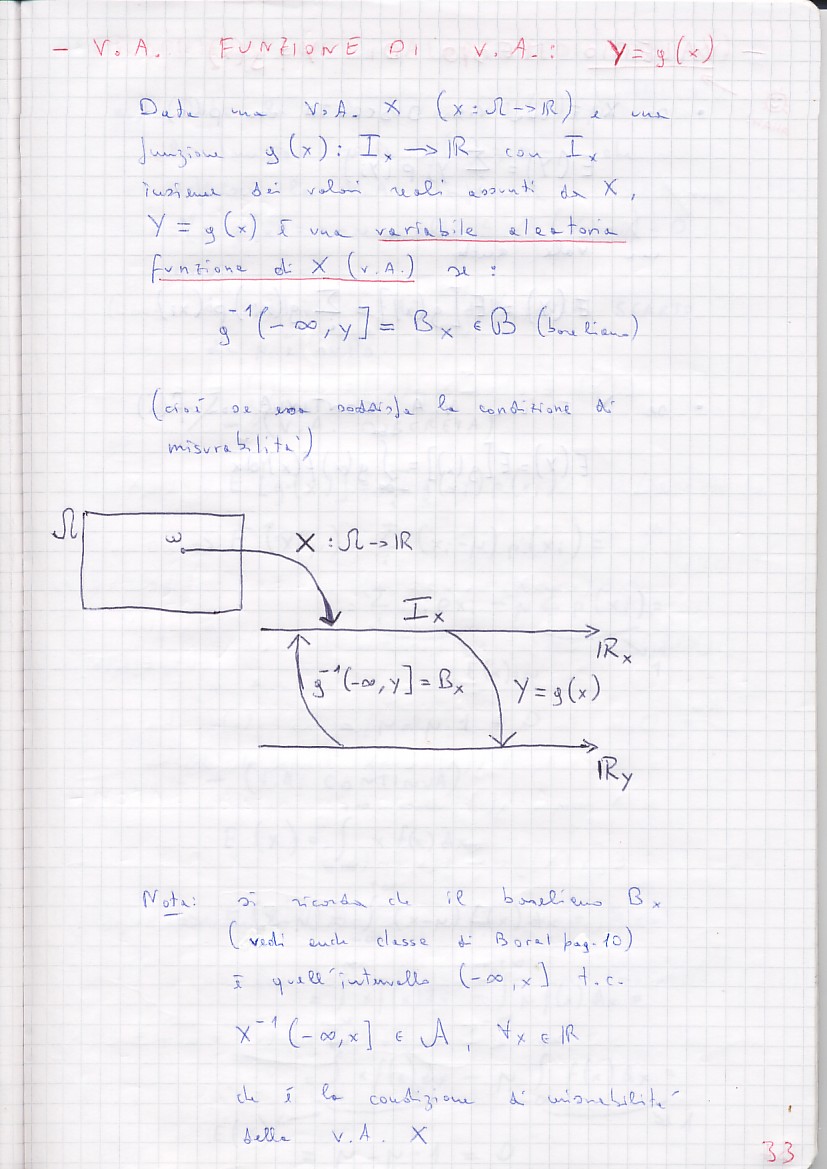 - V. A. FUNZIONE DI V. A.: Y = g(x) -
Data una V.A. X (X: Ω -> ℝ) e una
funzione g(x): Iₓ -> ℝ con Iₓ
insieme dei valori reali assunti da X,
Y = g(x) è una variabile aleatoria
funzione di X (v.A.) se:
g⁻¹(-∞, y] = Bₓ ∈ B (boreliano)
(cioè se essa soddisfa la condizione di
misurabilità)
Ω
ω
X : Ω -> ℝ
Iₓ
ℝₓ
g⁻¹(-∞, y] = Bₓ
Y = g(x)
ℝy
Nota: si ricorda che il boreliano Bₓ
(vedi anche classe di Borel pag. 10)
è quell'intervallo (-∞, x] t.c.
X⁻¹(-∞, x] ∈ A, ∀x ∈ ℝ
che è la condizione di misurabilità
della v.A. X
33